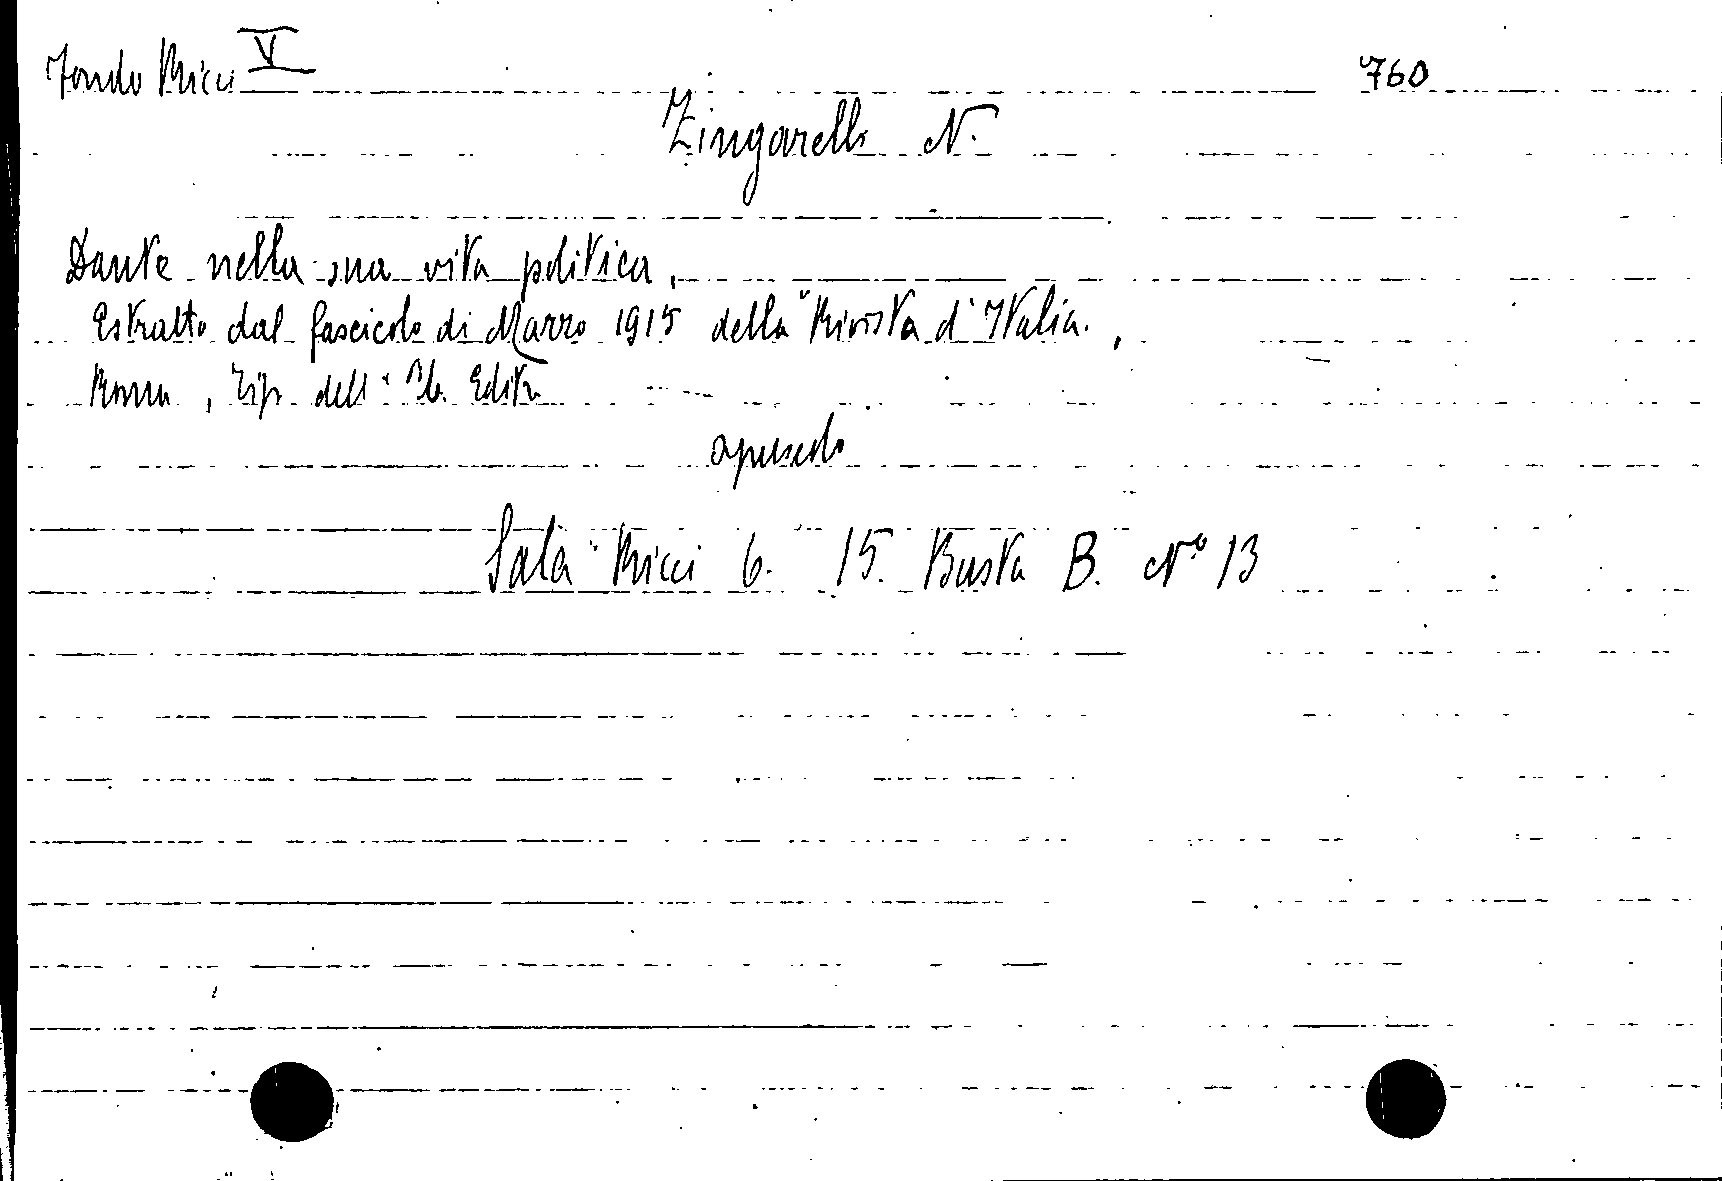 Fondo Ricci V 760
Zingarelli N.
Dante nella sua vita politica,
Estratto dal fascicolo di Marzo 1915 della "Rivista d'Italia.,
Roma, Tip. dell' Un. Editr
opuscolo
Sala Ricci 6. 15. Busta B. N° 13